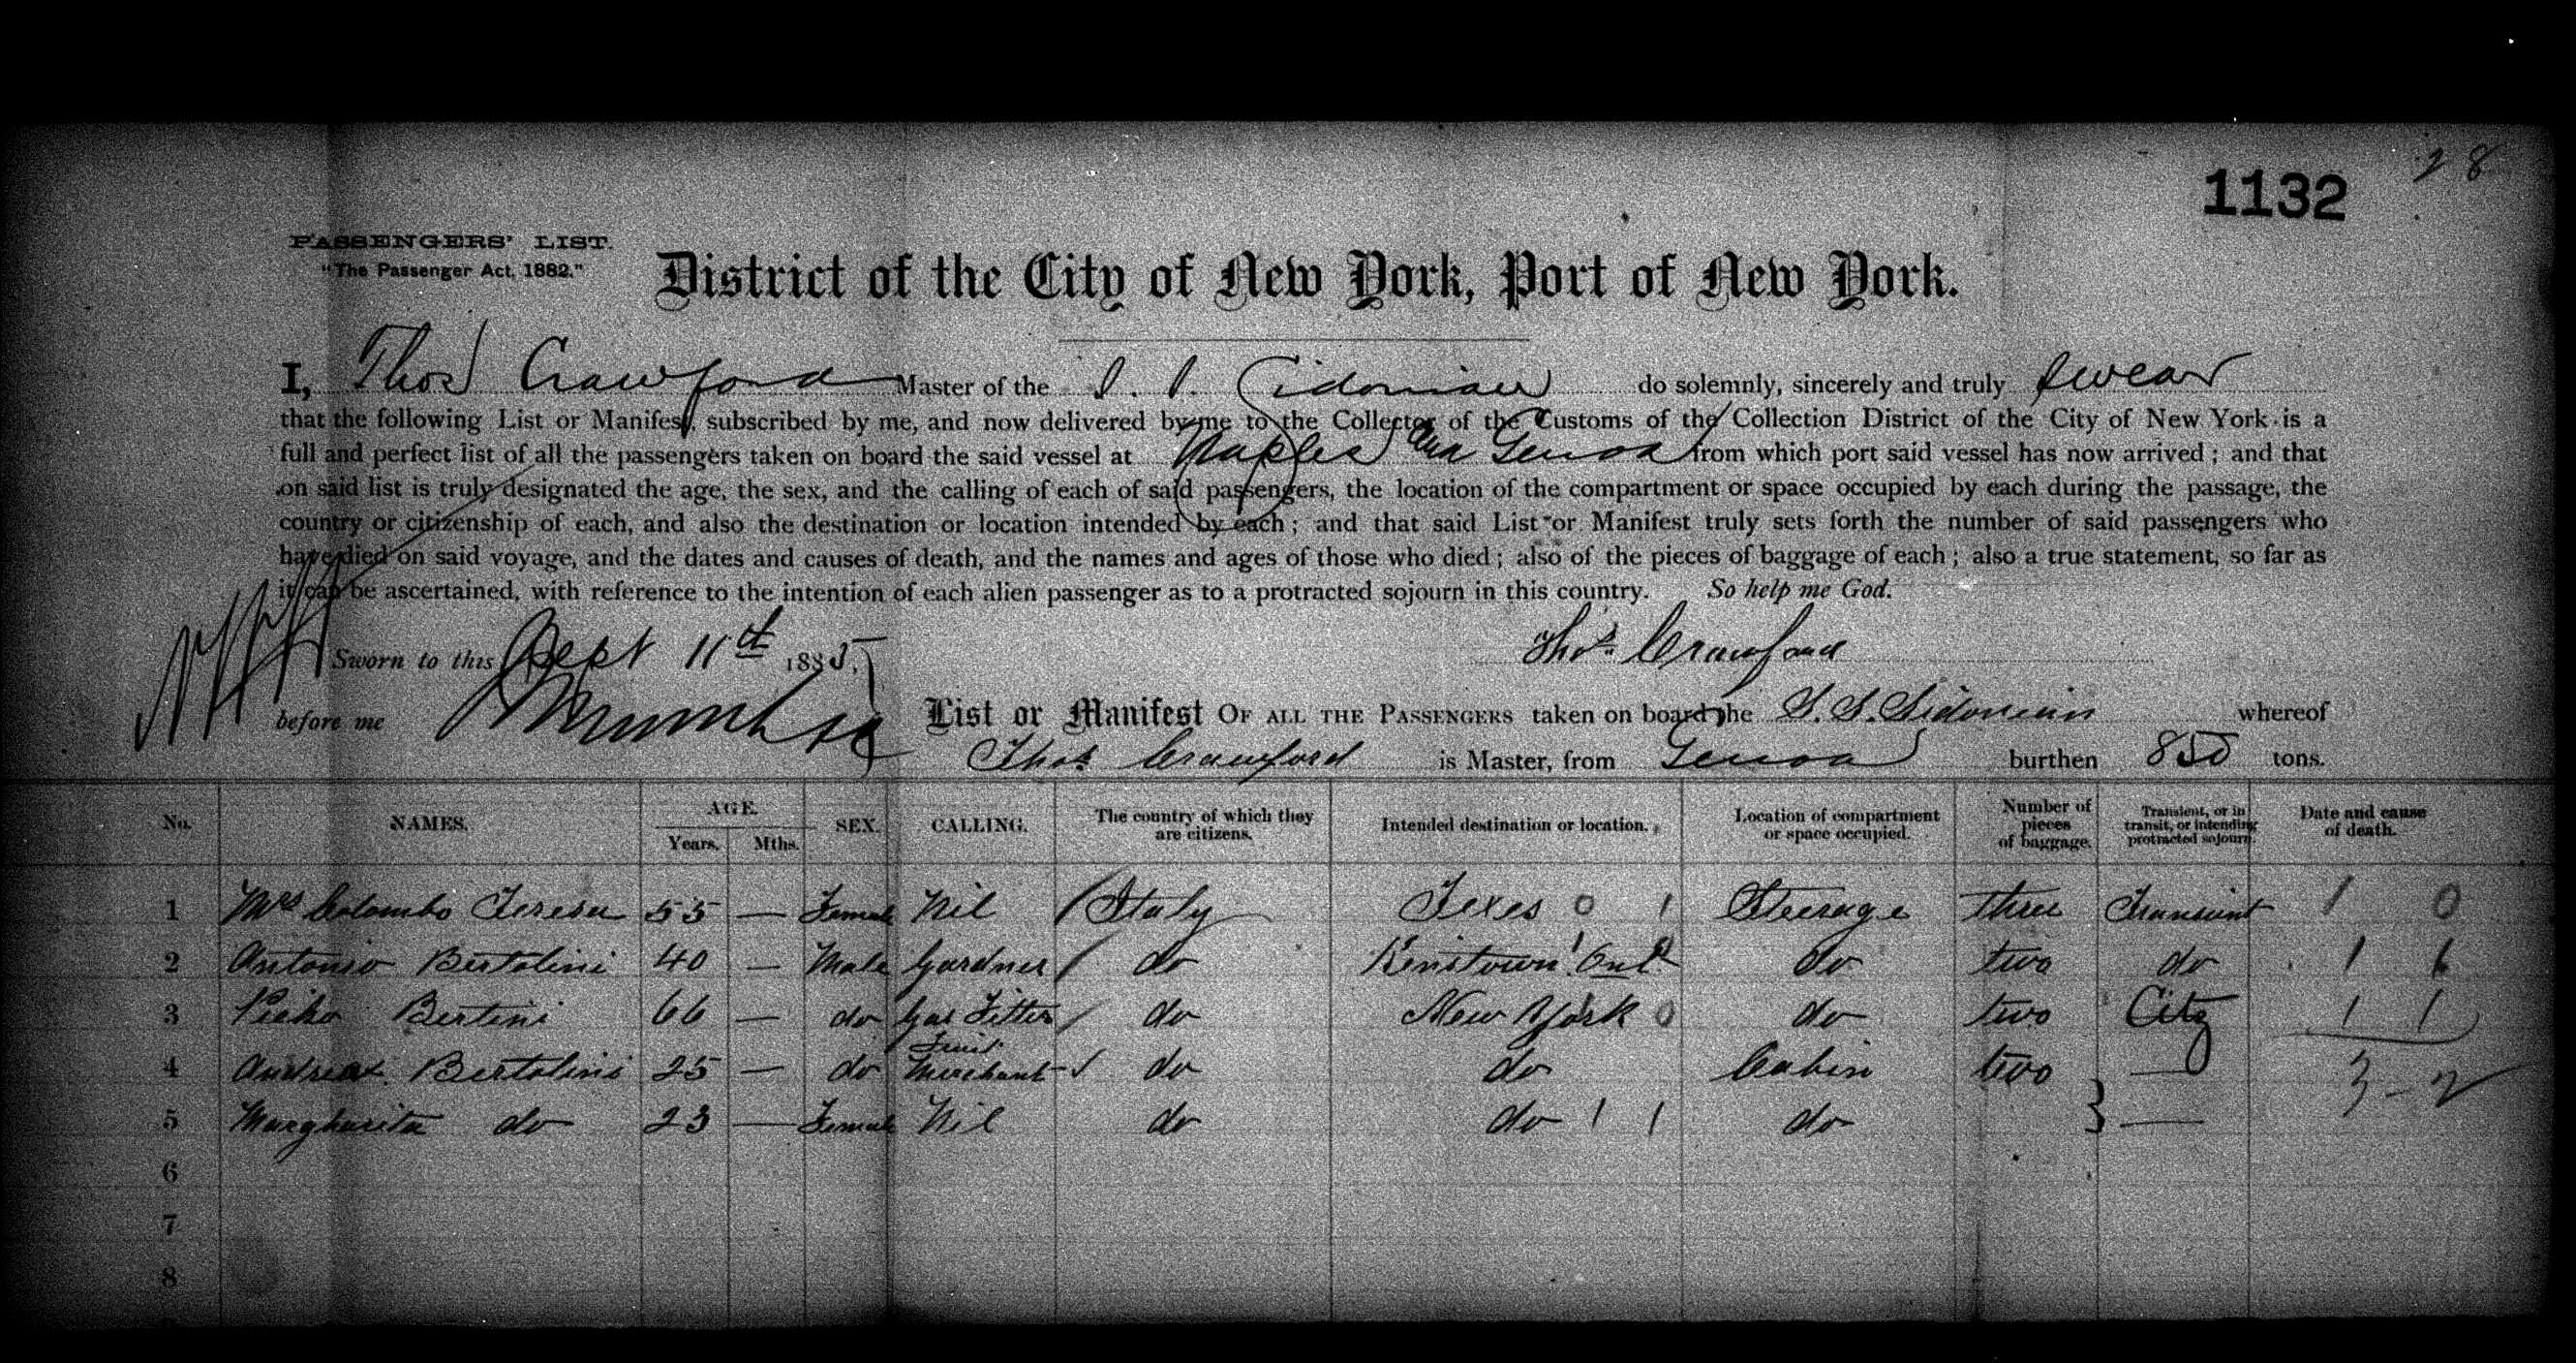 28
1132
PASSENGERS' LIST.
"The Passenger Act, 1882."
District of the City of New York, Port of New York.
I, Thos Crawford Master of the S. S. Cidonian do solemnly, sincerely and truly swear
that the following List or Manifest, subscribed by me, and now delivered by me to the Collector of the Customs of the Collection District of the City of New York is a
full and perfect list of all the passengers taken on board the said vessel at Naples Genoa from which port said vessel has now arrived; and that
on said list is truly designated the age, the sex, and the calling of each of said passengers, the location of the compartment or space occupied by each during the passage, the
country or citizenship of each, and also the destination or location intended by each; and that said List or Manifest truly sets forth the number of said passengers who
have died on said voyage, and the dates and causes of death, and the names and ages of those who died; also of the pieces of baggage of each; also a true statement, so far as
it can be ascertained, with reference to the intention of each alien passenger as to a protracted sojourn in this country. So help me God.
Sworn to this Sept 11th 1885. Thos. Crawford
before me
List or Manifest OF ALL THE PASSENGERS taken on board the S. S. Sidonian whereof
Thos Crawford is Master, from Genoa burthen 850 tons.
No. NAMES. AGE. Years. Mths. SEX. CALLING. The country of which they are citizens. Intended destination or location. Location of compartment or space occupied. Number of pieces of baggage. Transient, or in transit, or intending protracted sojourn. Date and cause of death.
1 Mrs Colombo Teresa 55 — Female Nil Italy Texes 0 1 Steerage three Transient 1 0
2 Antonio Bertolini 40 — Male Gardner do do two do 1
3 Bertini 66 — do Gas Fitter do New York 0 do two City 1 1
4 Andrea Bertolini 25 — do Fruit Merchant do do Cabin two — 3 - 2
5 Margharita do 23 — Female Nil do do 1 1 do —
6
7
8